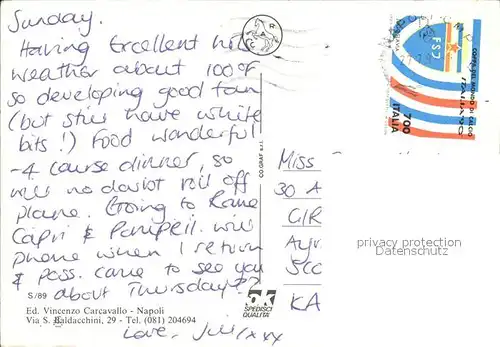 Sunday.
Having Excellent hot
weather about 100°F
so developing good tan
(but still have white
bits!) Food wonderful
-4 course dinner, so
will no doubt roll off
plane. Going to Rome
Capri & Pompeii. will
phone when I return
& poss. come to see you
about Thursday??
Love, Juli xxx
S/89
Ed. Vincenzo Carcavallo - Napoli
Via S. Baldacchini, 29 - Tel. (081) 204694
CO.GRAF s.r.l.
ok
SPEDISCI
QUALITÀ
COPPA DEL MONDO DI CALCIO
ITALIA '90
FSJ
700
ITALIA
Miss
30 A
GIR
Ayr
Sco
KA
privacy protection
Datenschutz